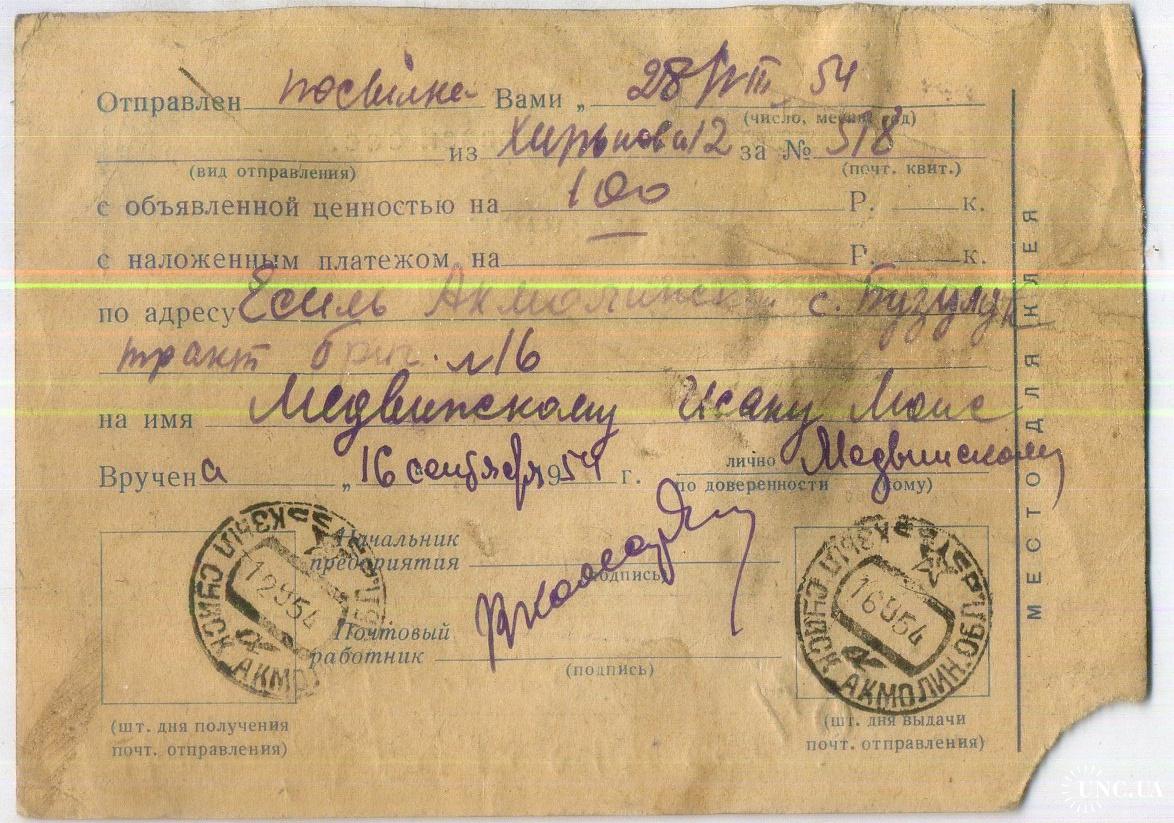 Отправлен посылка Вами „ 28/VIII 54
(число, месяц, год)
из Харькова 12 за № 518
(вид отправления) (почт. квит.)
с объявленной ценностью на 100 Р. к.
с наложенным платежом на Р. к.
по адресу Есиль Акмолинской с. Бузулук
тракт бриг. №16
на имя Медвинскому Исаку Моис
Вручена „ 16 сентября 1954 г. лично Медвинскому
по доверенности (кому)
Начальник
предприятия
(подпись)
Почтовый
работник
(подпись)
(шт. дня получения
почт. отправления)
(шт. дня выдачи
почт. отправления)
МЕСТО ДЛЯ КЛЕЯ
АКМОЛИН. ОБЛ.
UNC.UA